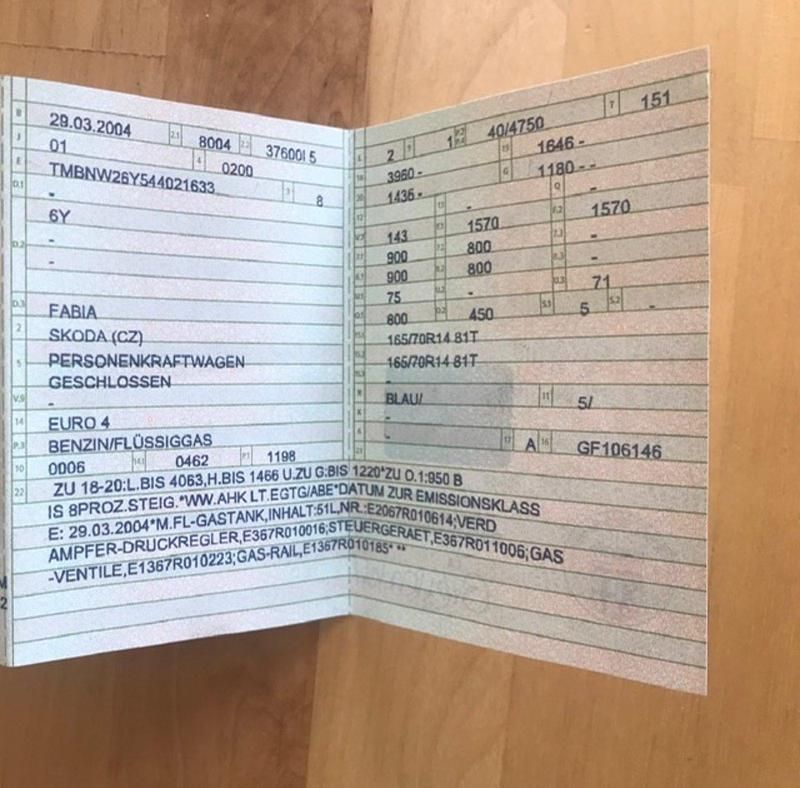 B 29.03.2004 2.1 8004 2.2 376001 5
J 01 4 0200
E TMBNW26Y544021633 3 8
D.1 -
6Y
D.2 -
-
D.3 FABIA
2 SKODA (CZ)
5 PERSONENKRAFTWAGEN
GESCHLOSSEN
V.9 -
14 EURO 4
P.3 BENZIN/FLÜSSIGGAS
10 0006 14.1 0462 P.1 1198
L 2 9 1 P.2 P.4 40/4750 T 151
18 3960 - 19 1646 -
20 1436 - G 1180 - -
12 - 13 - Q -
V.7 143 F.1 1570 F.2 1570
7.1 900 7.2 800 7.3 -
8.1 900 8.2 800 8.3 -
U.1 75 U.2 - U.3 71
O.1 800 O.2 450 S.1 5 S.2 -
15.1 165/70R14 81T
15.2 165/70R14 81T
15.3 -
R BLAU/ 11 5/
K -
6 - 17 A 16 GF106146
21 -
22 ZU 18-20:L.BIS 4063,H.BIS 1466 U.ZU G:BIS 1220*ZU O.1:950 B
IS 8PROZ.STEIG.*WW.AHK LT.EGTG/ABE*DATUM ZUR EMISSIONSKLASS
E: 29.03.2004*M.FL-GASTANK,INHALT:51L,NR.:E2067R010614;VERD
AMPFER-DRUCKREGLER,E367R010016;STEUERGERAET,E367R011006;GAS
-VENTILE,E1367R010223;GAS-RAIL,E1367R010185* **
M
2